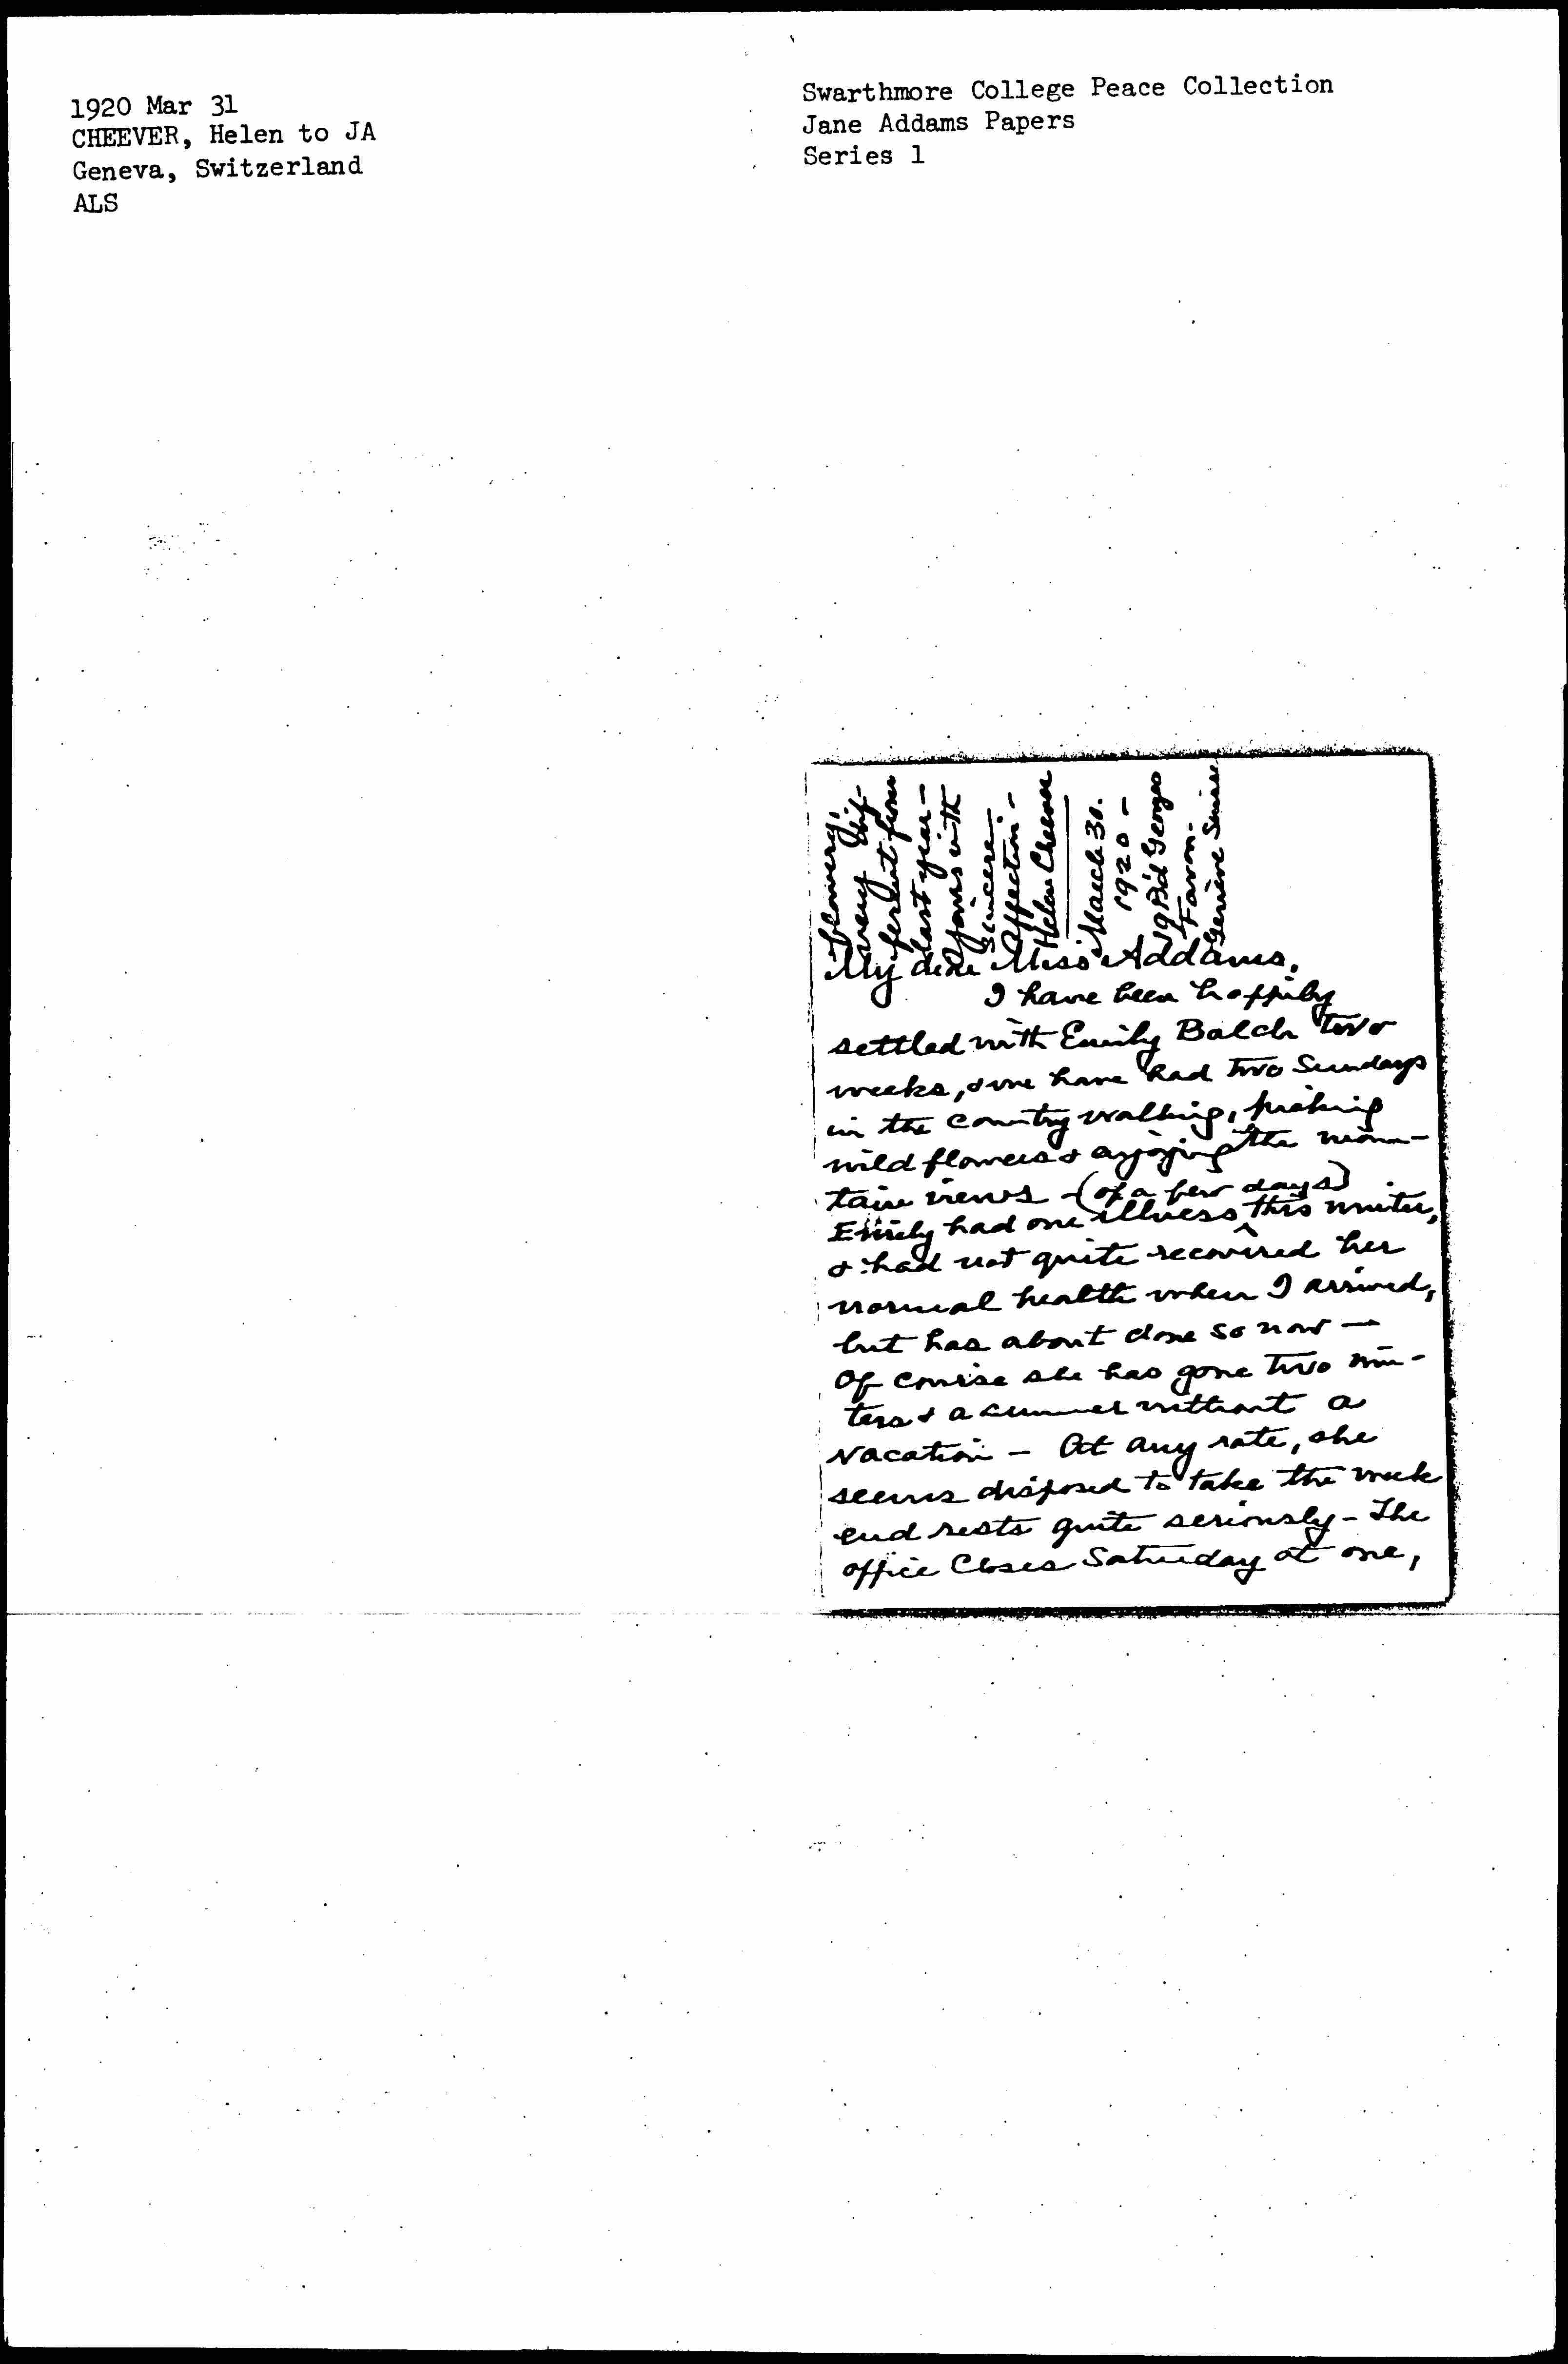 1920 Mar 31
CHEEVER, Helen to JA
Geneva, Switzerland
ALS
Swarthmore College Peace Collection
Jane Addams Papers
Series 1
flowery,
very dif-
ferent from
last year—
Yours with
sincere
affection—
Helen Cheever
March 30.
1920—
19 Bd Georges
Favon.
Genève Suisse
My dear Miss Addams,
I have been happily
settled with Emily Balch two
weeks, & we have had two Sundays
in the country walking, picking
wild flowers & enjoying the moun-
tain views – (of a few days)
Emily had one illness ^ this winter,
& had not quite recovered her
normal health when I arrived,
but has about done so now —
Of course she has gone two win-
ters & a summer without a
vacation – At any rate, she
seems disposed to take the week
end rests quite seriously – The
office closes Saturday at one,